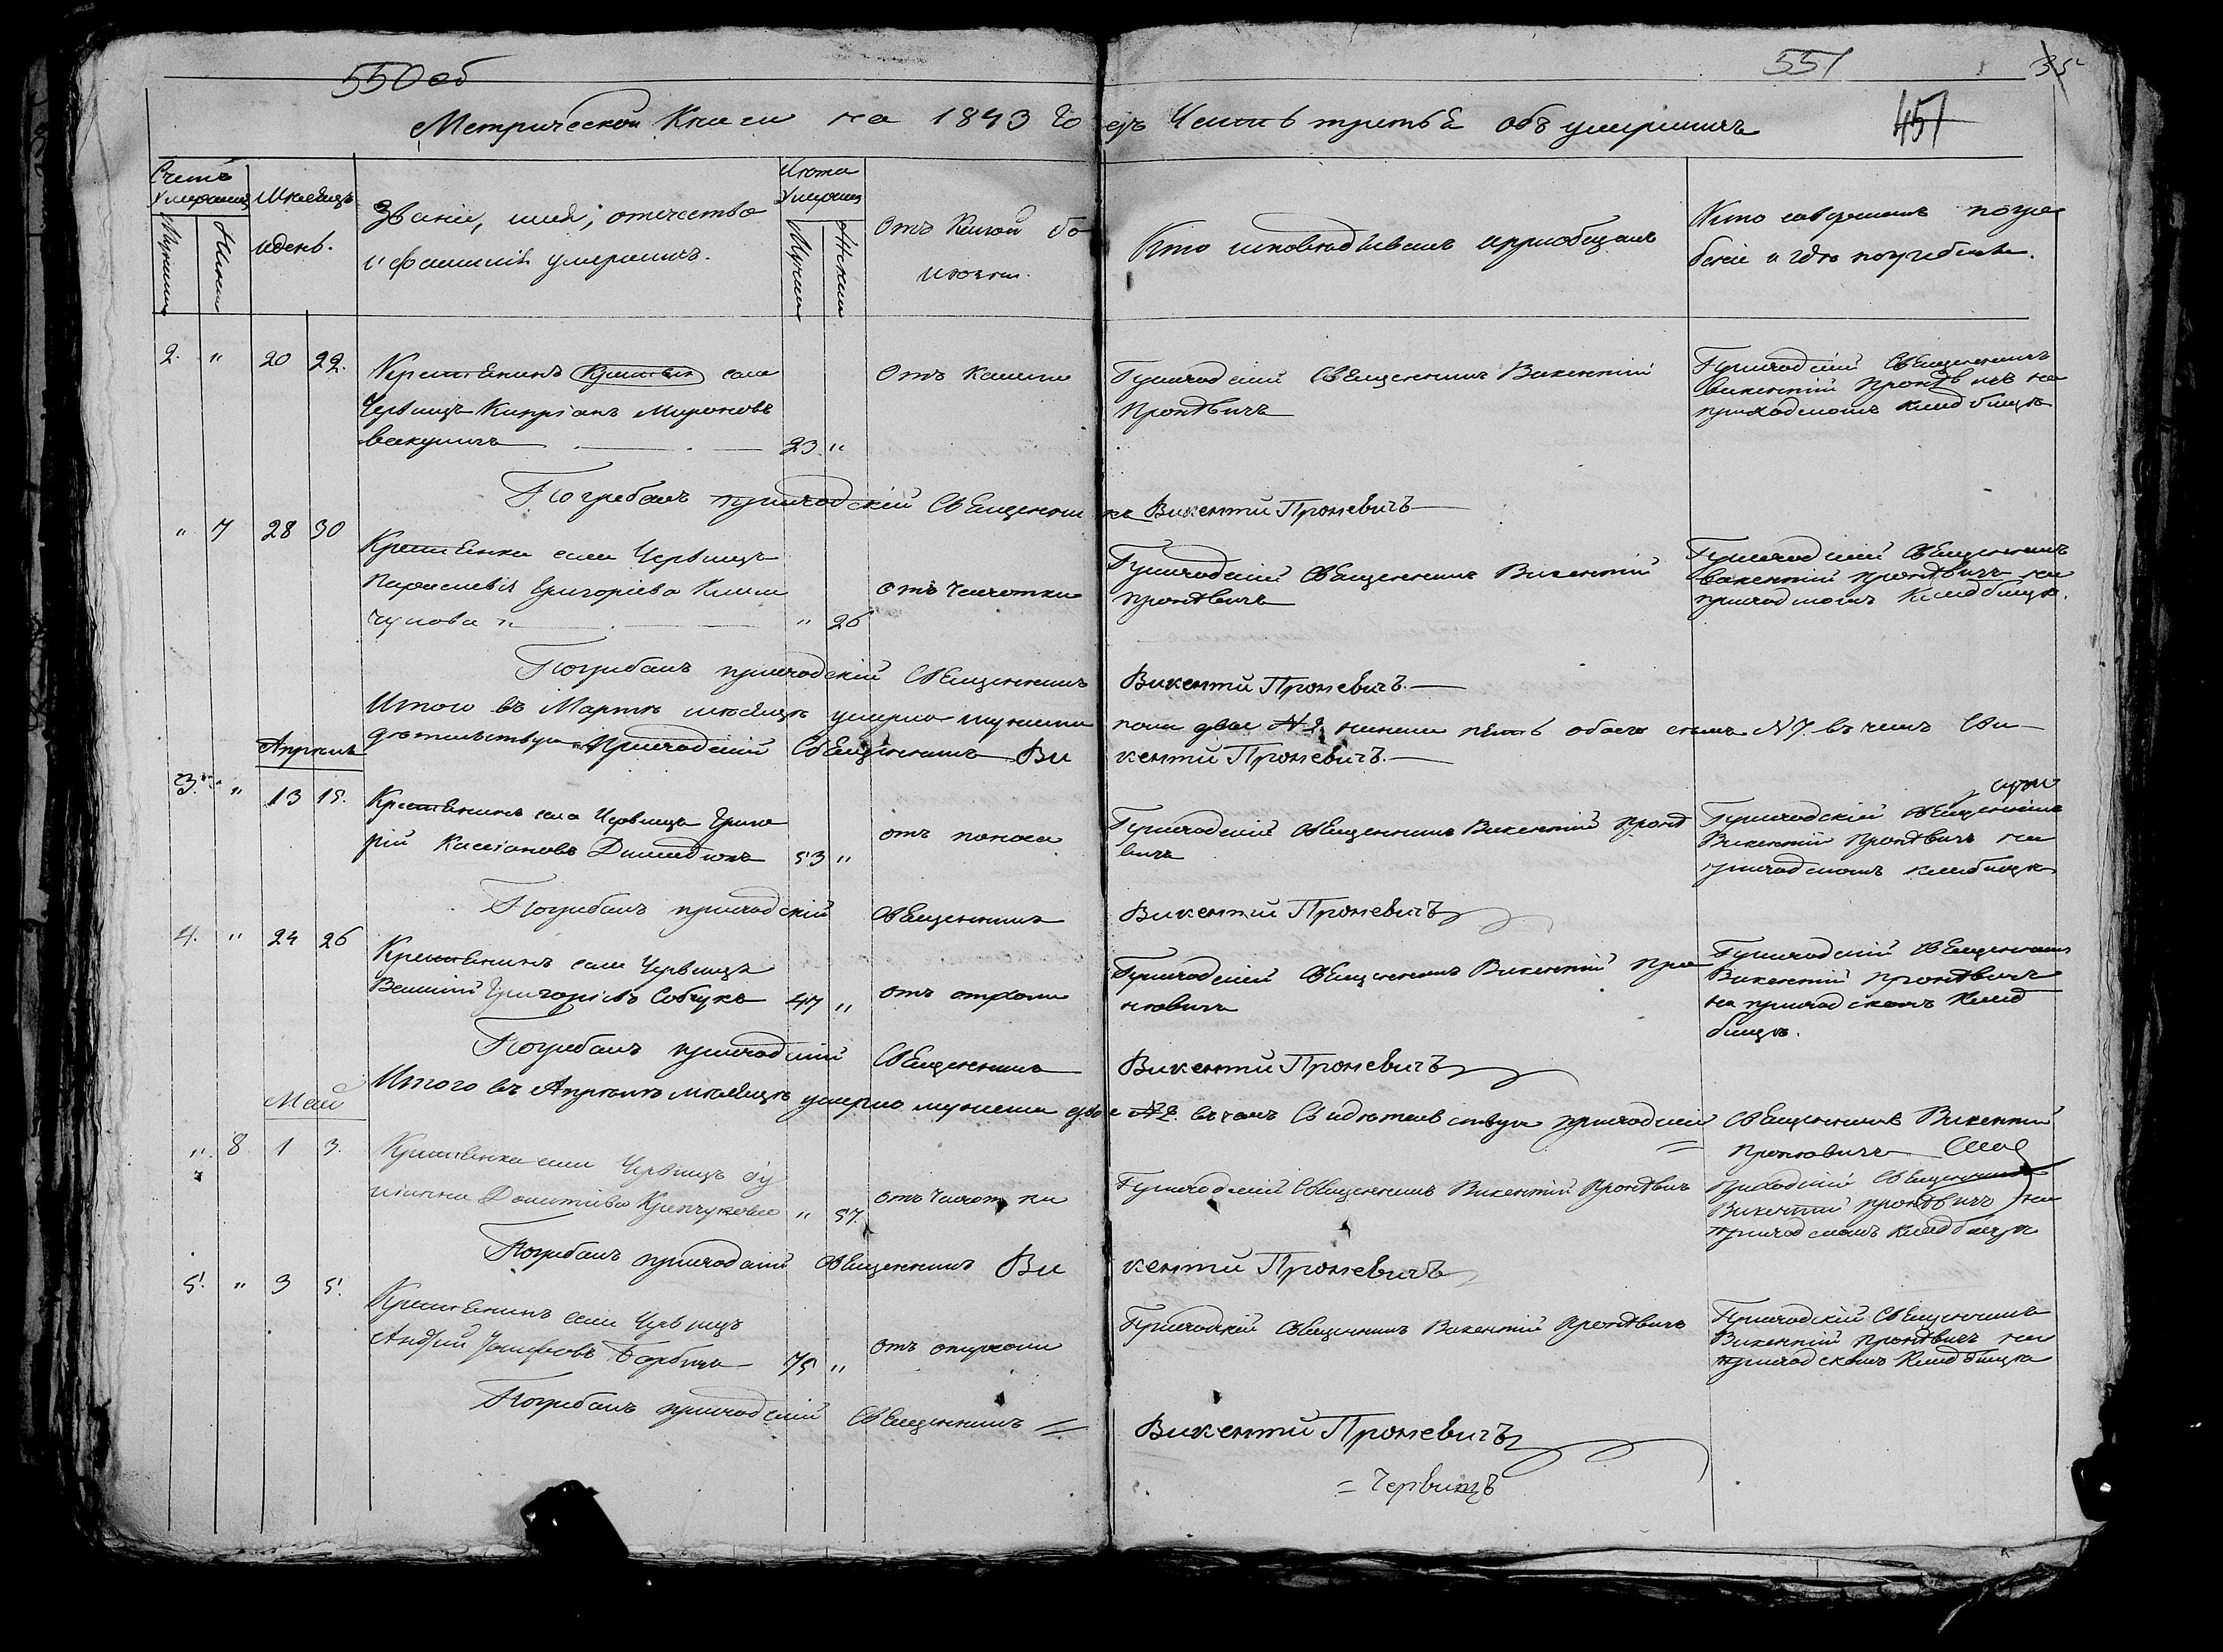 550 об
551
35
Метрической Книги на 1843 Годъ Часть третья объ умершихъ
451
Счетъ умершихъ
Мужеска
Женска
Месяцъ и день.
Званіе, имя, отечество
и фамилія умершихъ.
Лета умерших
Мужеска
Женска
Отъ какой болезни.
Кто исповедывалъ и пріобщалъ
Кто совершалъ погребеніе и где погребены.
2. " 20 22.
Крестьянинъ села
Червищъ Кипріанъ Мироновъ
23 "
Отъ кашли
Приходскій Священникъ Викентій
Проневичъ
Приходскій Священникъ
Викентій Проневичъ на
приходскомъ кладбище
Погребалъ приходскій Священникъ Викентій Проневичъ
" 7 28 30
Крестьянка села Червищъ
Параскевія Григоріева Климчукова
" 26
отъ чахотки
Приходскій Священникъ Викентій
Проневичъ
Приходскій Священникъ
Викентій Проневичъ на
приходскомъ кладбище.
Погребалъ приходскій Священникъ Викентій Проневичъ.
Итого въ Марте месяце умерло мужеска пола двое № 2 женска пять обоего № 7. въ чемъ Сви
детельствую Приходскій Священникъ Викентій Проневичъ.
Апрель
3. " 13 15.
Крестьянинъ села Червищъ Григо
рій Кассіановъ
53 "
отъ поноса
Приходскій Священникъ Викентій Проне
вичъ
Приходскій Священникъ
Викентій Проневичъ на
приходскомъ кладбище
Погребалъ приходскій Священникъ Викентій Проневичъ
4. " 24 26
Крестьянинъ села Червищъ
Василій Григоріевъ Собчукъ
47 "
отъ
Приходскій Священникъ Викентій Про
невичъ
Приходскій Священникъ
Викентій Проневичъ
на приходскомъ клад
бище.
Погребалъ приходскій Священникъ Викентій Проневичъ
Итого въ Апреле месяце умерло мужеска двое № 2. въ чемъ Свидетельствую приходскій Священникъ Викентій
Проневичъ
Май
" 8 1 3.
Крестьянка села Червищъ
" 57.
отъ чахотки
Приходскій Священникъ Викентій Проневичъ
Приходскій Священникъ
Викентій Проневичъ на
приходскомъ кладбище
Погребалъ приходскій Священникъ Викентій Проневичъ
5. " 3 5.
Крестьянинъ села Червищъ
Андрей
75 "
отъ опухоли
Приходскій Священникъ Викентій Проневичъ
Приходскій Священникъ
Викентій Проневичъ на
приходскомъ кладбище
Погребалъ приходскій Священникъ =
Викентій Проневичъ
= Червищъ